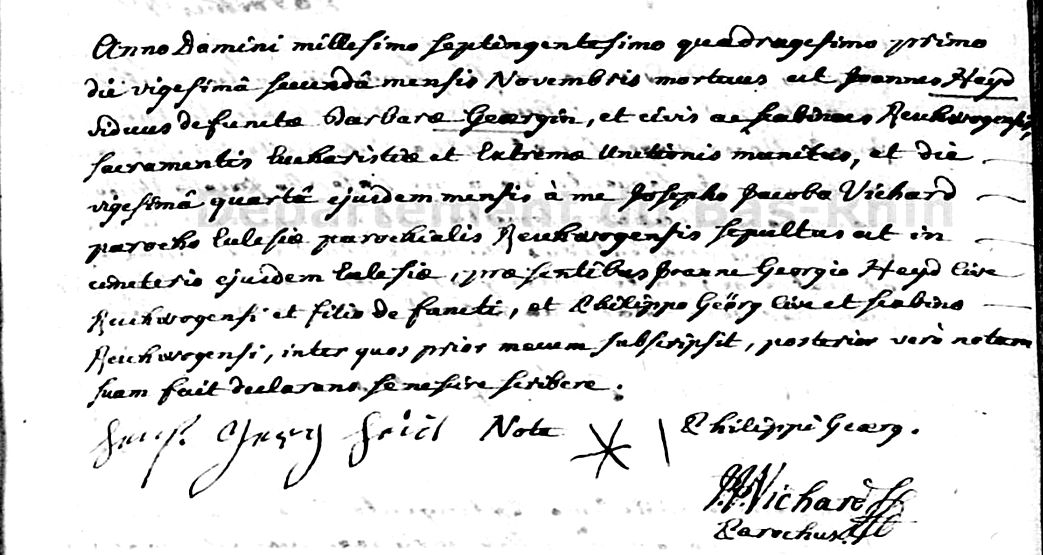 Anno Domini millesimo septingentesimo quadragesimo primo
die vigesimâ secundâ mensis Novembris mortuus est Joannes Heyd
viduus defunctæ Barbaræ Georgin, et civis ac scabinus Reichwogensis,
sacramentis Eucharistiæ et Extremæ Unctionis munitus, et die
vigesimâ quartâ ejusdem mensis à me Josepho Jacobo Vichard
parocho Eclesiæ parochialis Reichwogensis sepultus est in
cemeterio ejusdem Eclesiæ, præsentibus Joanne Georgio Heyd cive
Reichwogensi et filio defuncti, et Philippo Geörg cive et scabino
Reichwogensi, inter quos prior mecum subscripsit, posterior verò notam
suam fecit declarans se nescire scribere.
Hans Georg Heid Nota Philippi Georg.
J.J. Vichard
Parochus.
Département du Bas-Rhin